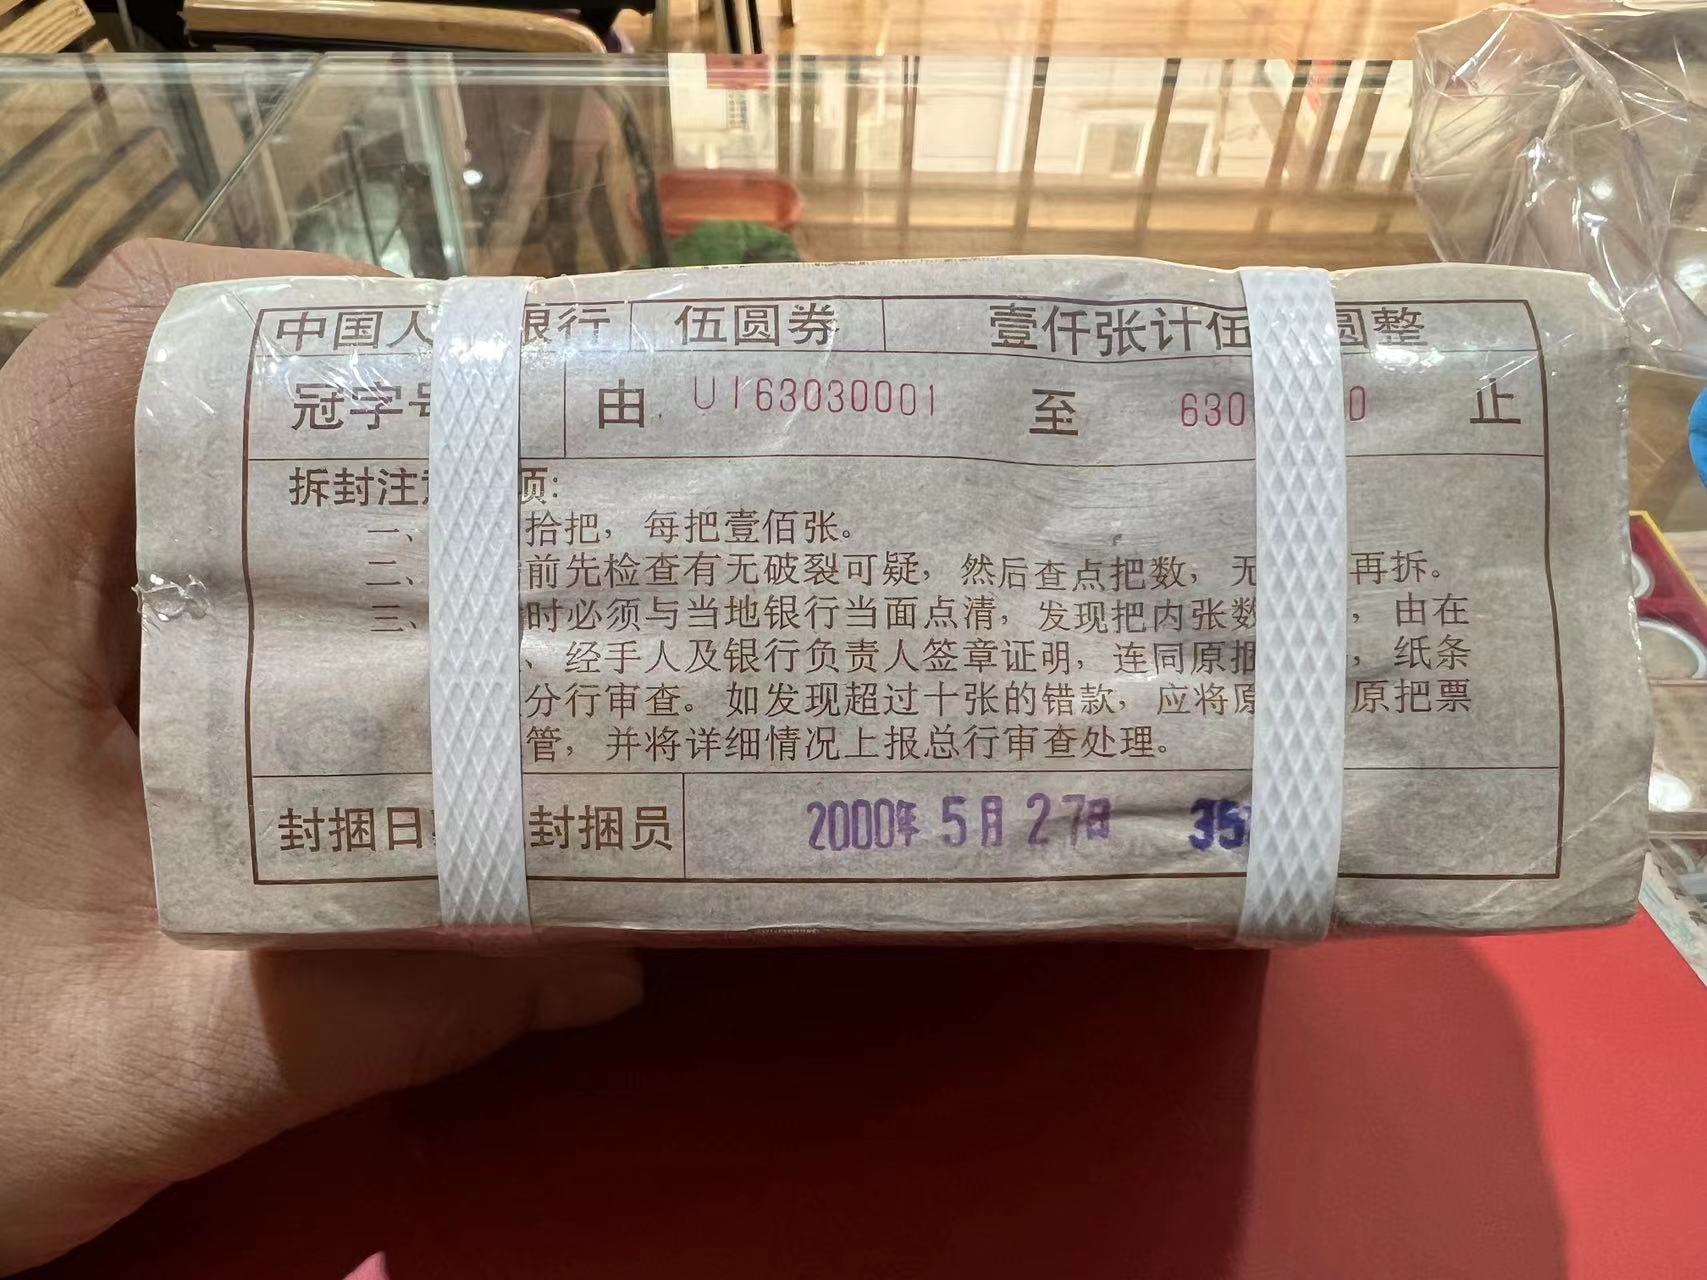 中国人 银行 伍圆券 壹仟张计伍 圆整
冠字号 由 UI63030001 至 630 0 止
拆封注 项:
一、 拾把，每把壹佰张。
二、 前先检查有无破裂可疑，然后查点把数，无 再拆。
三、 时必须与当地银行当面点清，发现把内张数 ，由在
、经手人及银行负责人签章证明，连同原 ，纸条
分行审查。如发现超过十张的错款，应将原 原把票
管，并将详细情况上报总行审查处理。
封捆日 封捆员 2000年 5月 27日 35